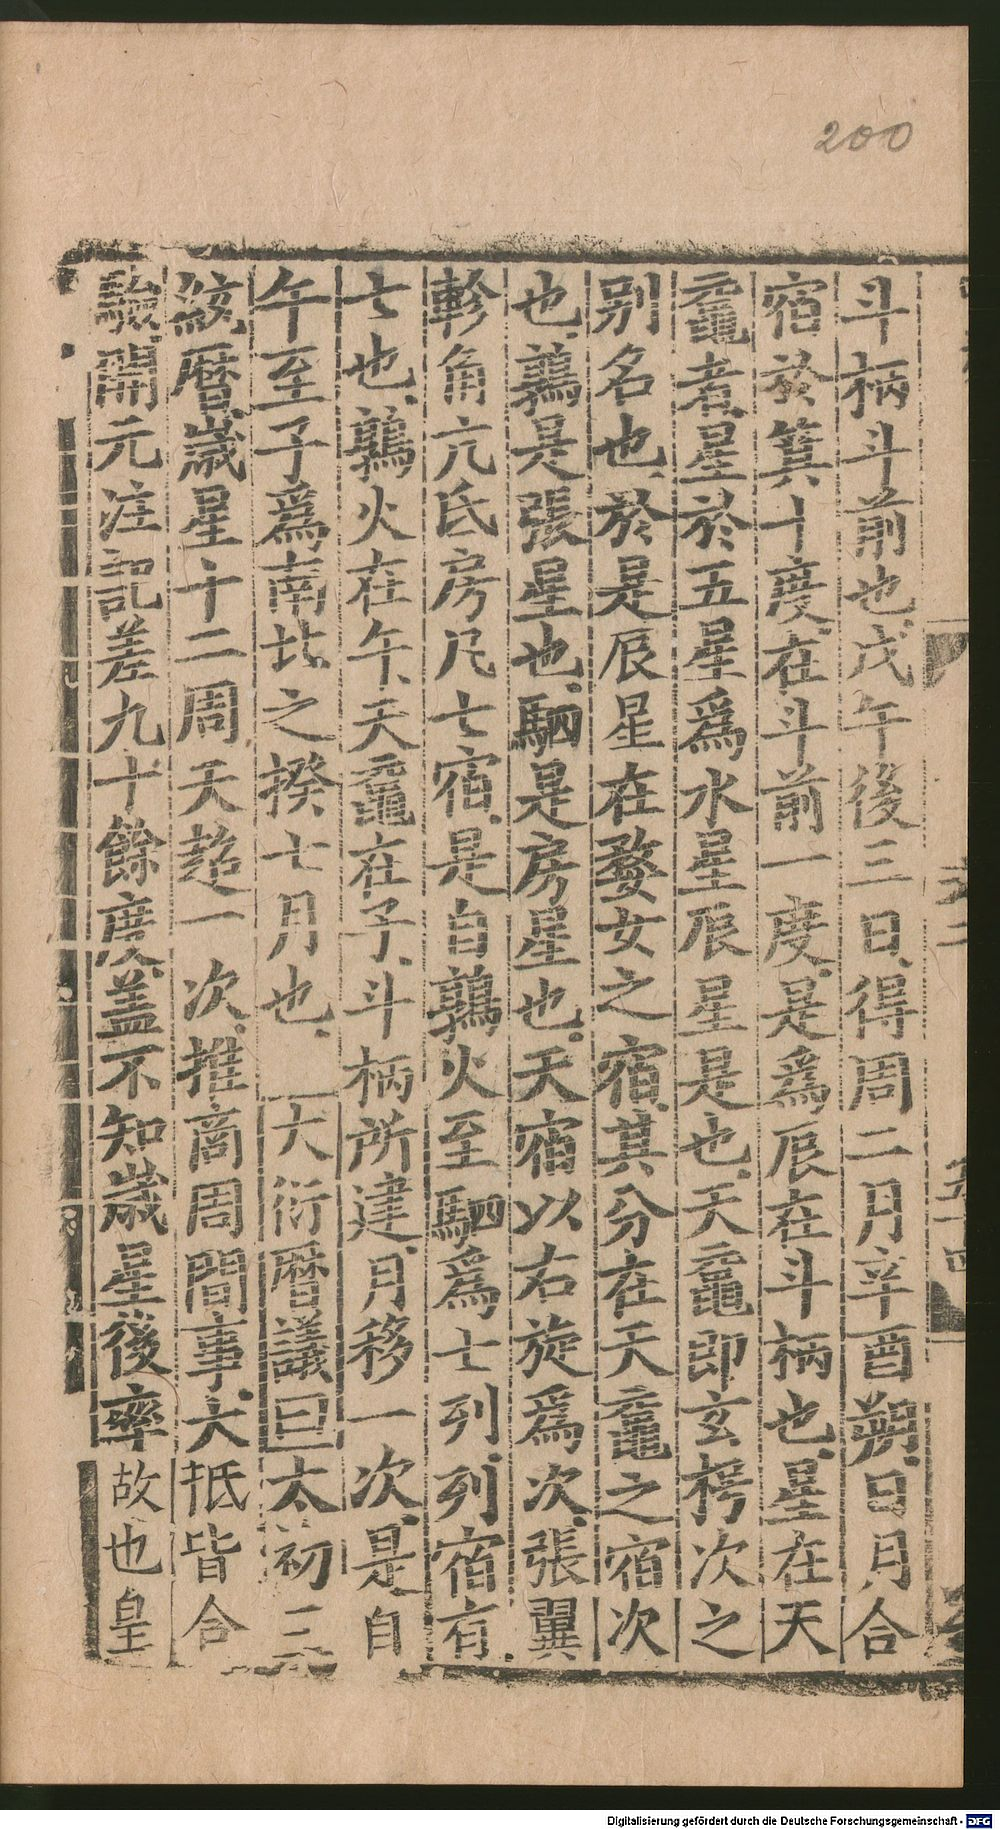 200
斗柄斗前也戊午後三日得周二月辛酉朔日月合
宿於箕十度在斗前一度是爲辰在斗柄也星在天
黿者星於五星爲水星辰星是也天黿即玄枵次之
别名也於是辰星在婺女之宿其分在天黿之宿次
也鶉是張星也駟是房星也天宿以右旋爲次張翼
軫角亢氐房凡七宿是自鶉火至駟爲七列列宿有
七也鶉火在午天黿在子斗柄所建月移一次是自
午至子爲南北之揆七月也 大衍曆議曰太初三
統曆歲星十二周天超一次推商周間事大抵皆合
驗開元注記差九十餘度盖不知歲星後率故也皇
Digitalisierung gefördert durch die Deutsche Forschungsgemeinschaft - DFG